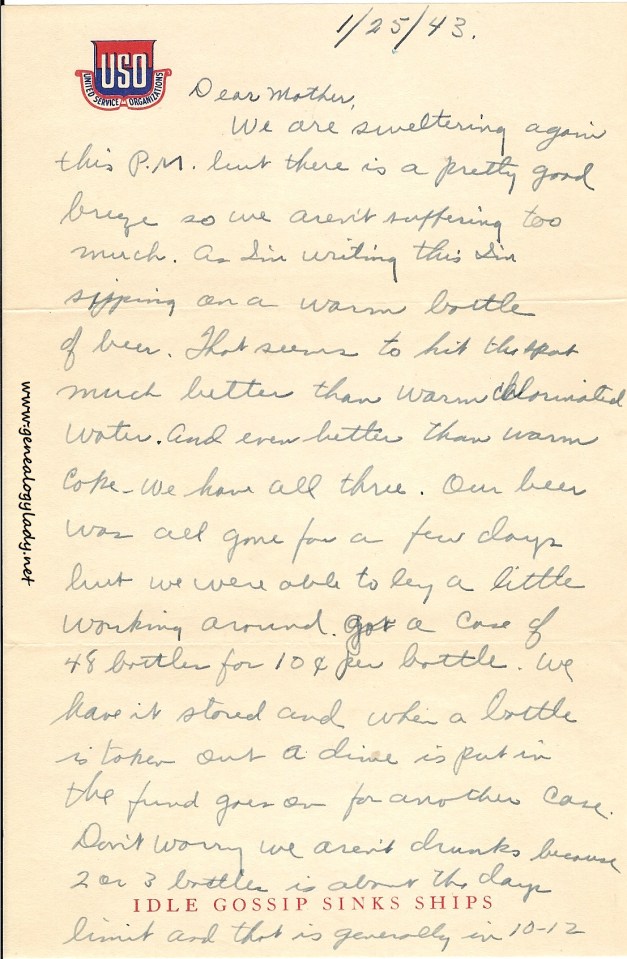 1/25/43.
USO
UNITED SERVICE ORGANIZATIONS
Dear Mother,
We are sweltering again
this P.M. but there is a pretty good
breeze so we aren't suffering too
much. As I'm writing this I'm
sipping on a warm bottle
of beer. That seems to hit the spot
much better than warm chlorinated
water. And even better than warm
Coke - We have all three. Our beer
was all gone for a few days
but we were able to by a little
working around. got a case of
48 bottles for 10¢ per bottle. We
have it stored and when a bottle
is taken out a dime is put in
the fund goes on for another case.
Don't worry we aren't drunks because
2 or 3 bottles is about the days
IDLE GOSSIP SINKS SHIPS
limit and that is generally in 10-12
www.genealogylady.net